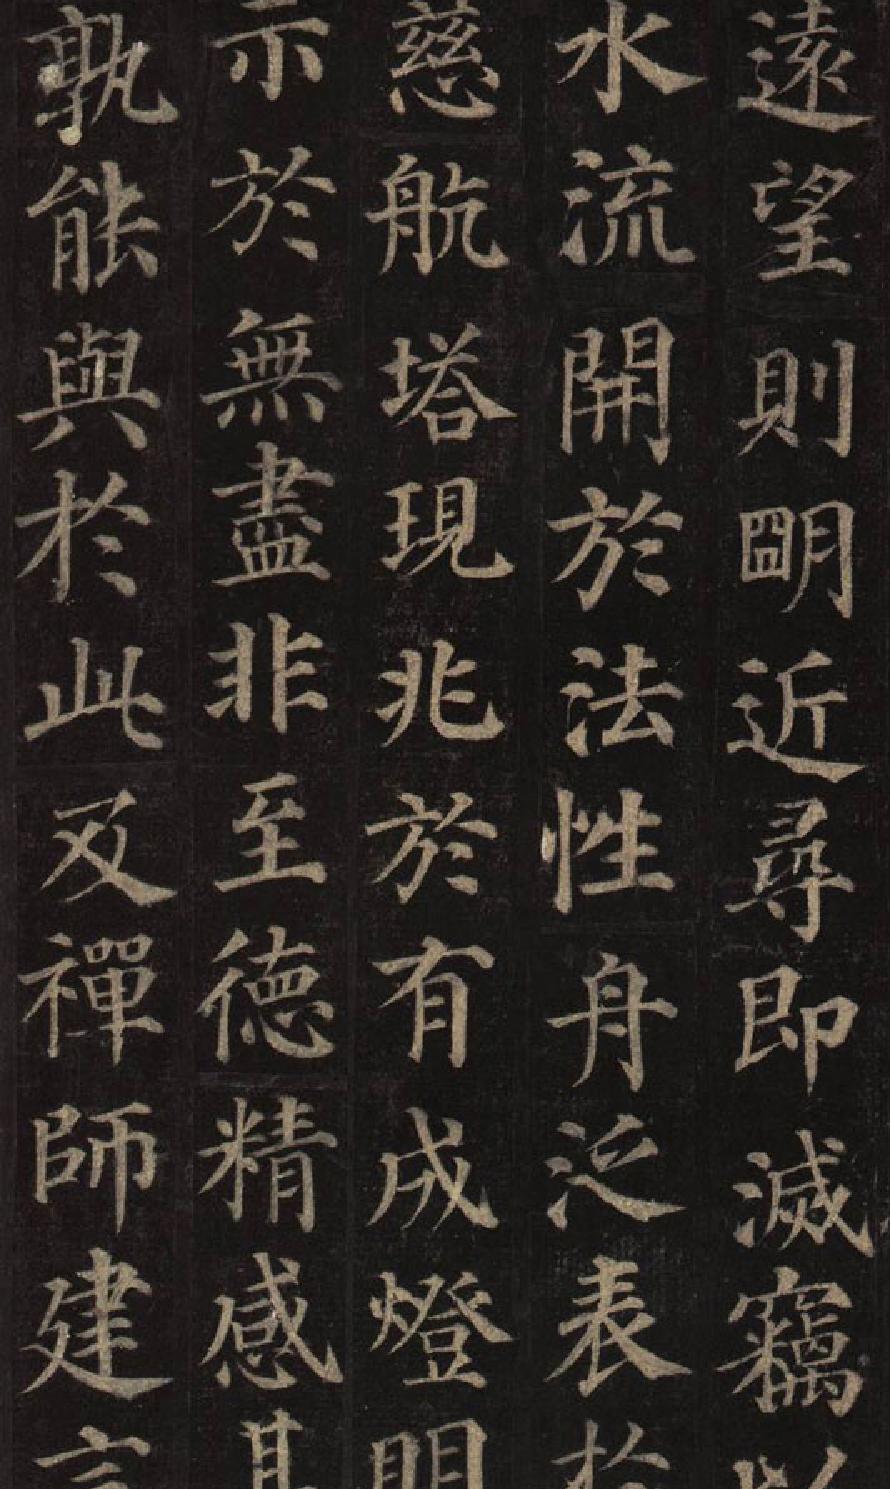 遠望則明近尋即滅竊以
水流開於法性舟泛表於
慈航塔現兆於有成燈明
示於無盡非至德精感其
孰能與於此及禪師建言